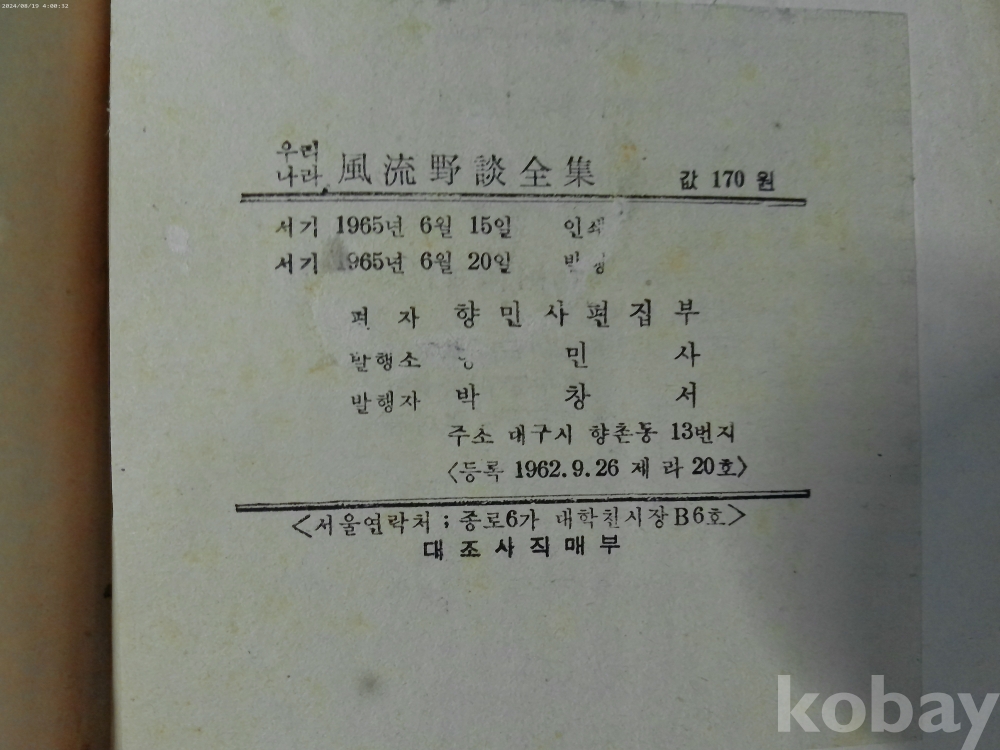 2024/08/19 4:00:32
우리
나라 風流野談全集 값 170 원
서기 1965년 6월 15일 인쇄
서기 1965년 6월 20일
자 향민사편집부
발행소 민 사
발행자 박 창 서
주소 대구시 향촌동 13번지
<등록 1962.9.26 제 라 20호>
<서울연락처 ; 종로6가 대학천시장 B6호>
대조사직매부
kobay